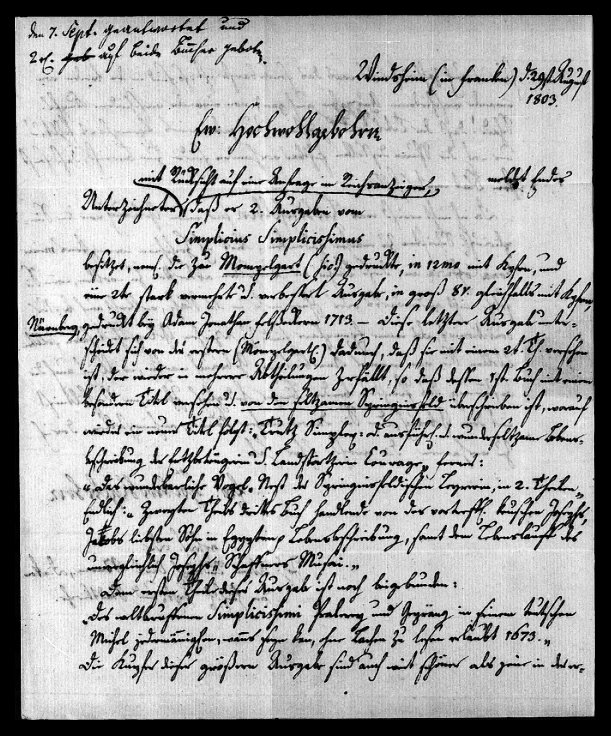 den 7. Sept. geantwortet und
2 rl. auf beide Bücher geboten
Windsheim (in Franken) d. 29st. August
1803.
Ew: Hochwohlgebohrn
mit Rücksicht auf eine Anfrage im Reichsanzeiger, meldet Endes
Unterzeichneter, daß er 2. Ausgaben vom
Simplicius Simplicissimus
besitzt, eine die zu Mompelgart (sic) gedruckt, in 12mo mit Kpfrn, und
eine 2te stark vermehrt u. verbesserte Ausgabe, in groß 8v. gleichfalls mit Kpfrn,
Nürnberg, gedruckt bey Adam Jonathan Felßeckern 1713 — Diese letztere Ausgabe unter-
scheidet sich von der erstern (Mompelgart) dadurch, daß sie mit einem 2t. Th. versehen
ist, der wieder in mehrere Abtheilungen zerfällt, so daß dessen 1st. Buch mit einem
besondern Titel versehen u. von dem seltzamen Springinsfeld überschrieben ist, worauf
wieder ein neuer Titel folgt: Trutz Simplex: d. ausführl. u. wunderseltzame Lebens-
beschreibung der Ertzbetrügerin u. Landstörtzerin Courage, ferner:
"Das wunderbarliche Vogel-Nest der Springinsfeldischen Leyrerin, in 2. Theilen"
Endlich: "Zweyten Theils drittes Buch handlend von des vortreffl. keuschen Josephs,
Jakobs liebsten Sohn in Egypten, Lebensbeschreibung, samt dem Lebenslauff des
unvergleichlich Josephs Schaffners Musai."
Dem ersten Theil dieser Ausgabe ist noch beygebunden:
"Des Simplicissimi Pralerey und Gepräng in seinem teutschen
Michel jedermänniglichen, wanns seyn kan, ohne Lachen zu lesen erlaubt 1673."
Die Kupfer dieser größern Ausgabe sind auch weit schöner als jene in der er-